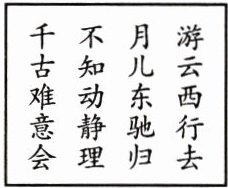 游云西行去
月儿东驰归
不知动静理
千古难意会